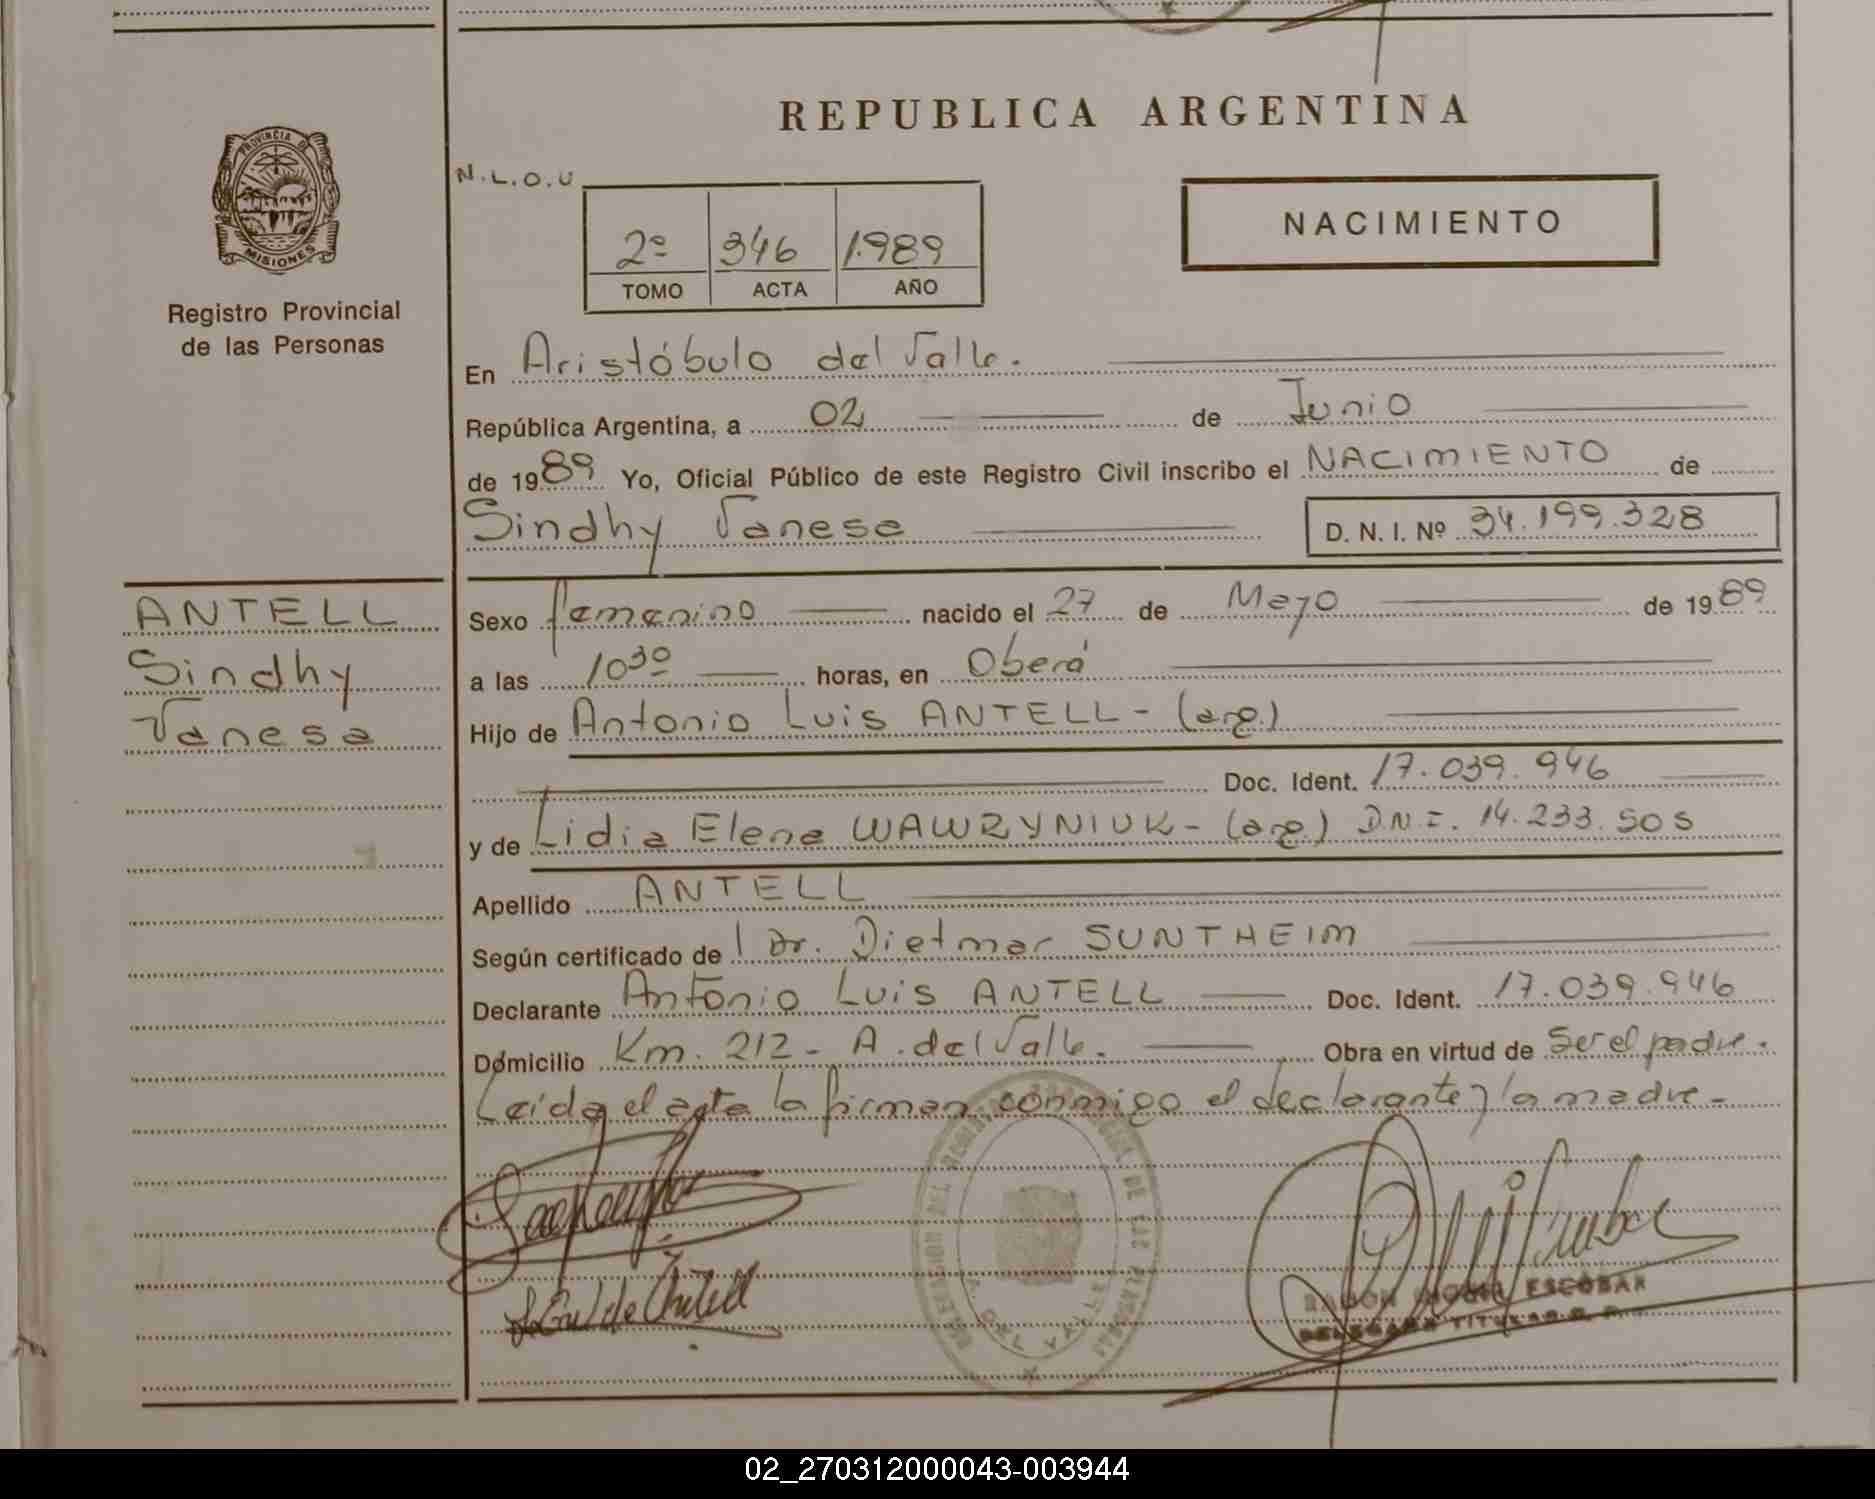 REPUBLICA ARGENTINA
PROVINCIA DE
MISIONES
Registro Provincial
de las Personas
N.L.O.U
2º 346 1.989
TOMO ACTA AÑO
NACIMIENTO
En Aristóbulo del Valle.
República Argentina, a 02 de Junio
de 1989 Yo, Oficial Público de este Registro Civil inscribo el NACIMIENTO de
Sindhy Vanesa D. N. I. Nº 34.199.328
ANTELL
Sindhy
Vanesa
Sexo femenino nacido el 27 de Mayo de 1989
a las 10³º horas, en Oberá
Hijo de Antonio Luis ANTELL - (arg.)
Doc. Ident. 17.039.946
y de Lidia Elena WAWRZYNIUK - (arg.) D.N.I. 14.233.505
Apellido ANTELL
Según certificado de l Dr. Dietmar SUNTHEIM
Declarante Antonio Luis ANTELL Doc. Ident. 17.039.946
Domicilio Km. 212 - A. del Valle. Obra en virtud de Ser el padre.
Leída el acta la firman conmigo el declarante y la madre -
A. DEL VALLE
ESCOBAR
02_270312000043-003944